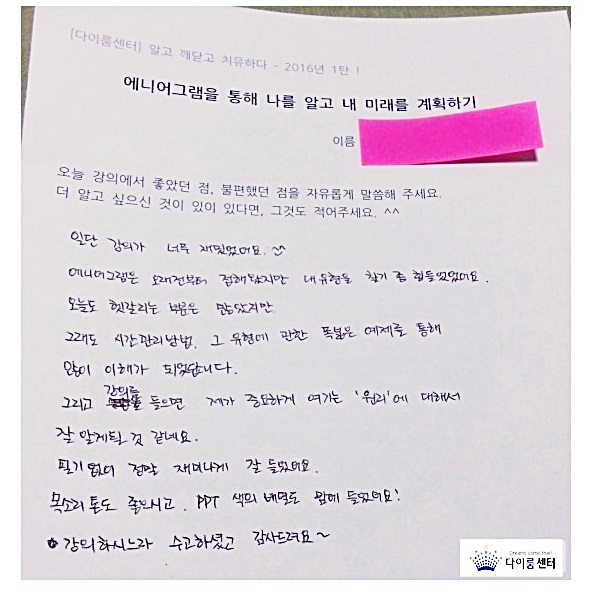 [다이룸센터] 알고 깨닫고 치유하다 - 2016년 1탄 !
에니어그램을 통해 나를 알고 내 미래를 계획하기
이름
오늘 강의에서 좋았던 점, 불편했던 점을 자유롭게 말씀해 주세요.
더 알고 싶으신 것이 있이 있다면, 그것도 적어주세요. ^^
일단 강의가 너무 재밌었어요.
에니어그램은 오래전부터 접해왔지만 내유형을 찾기 좀 힘들었었어요.
오늘도 헷갈리는 부분은 많았지만
그래도 시간관리방법, 그 유형에 관한 폭넓은 예제를 통해
많이 이해가 되었답니다.
그리고 강의를 들으면 제가 중요하게 여기는 '원리'에 대해서
잘 알게될 것 같네요.
필기 없이 정말 재미나게 잘 들었어요.
목소리 톤도 좋으시고, PPT 색의 배열도 맘에 들었어요!
강의하시느라 수고하셨고 감사드려요~
Dreams come true!
다이룸센터